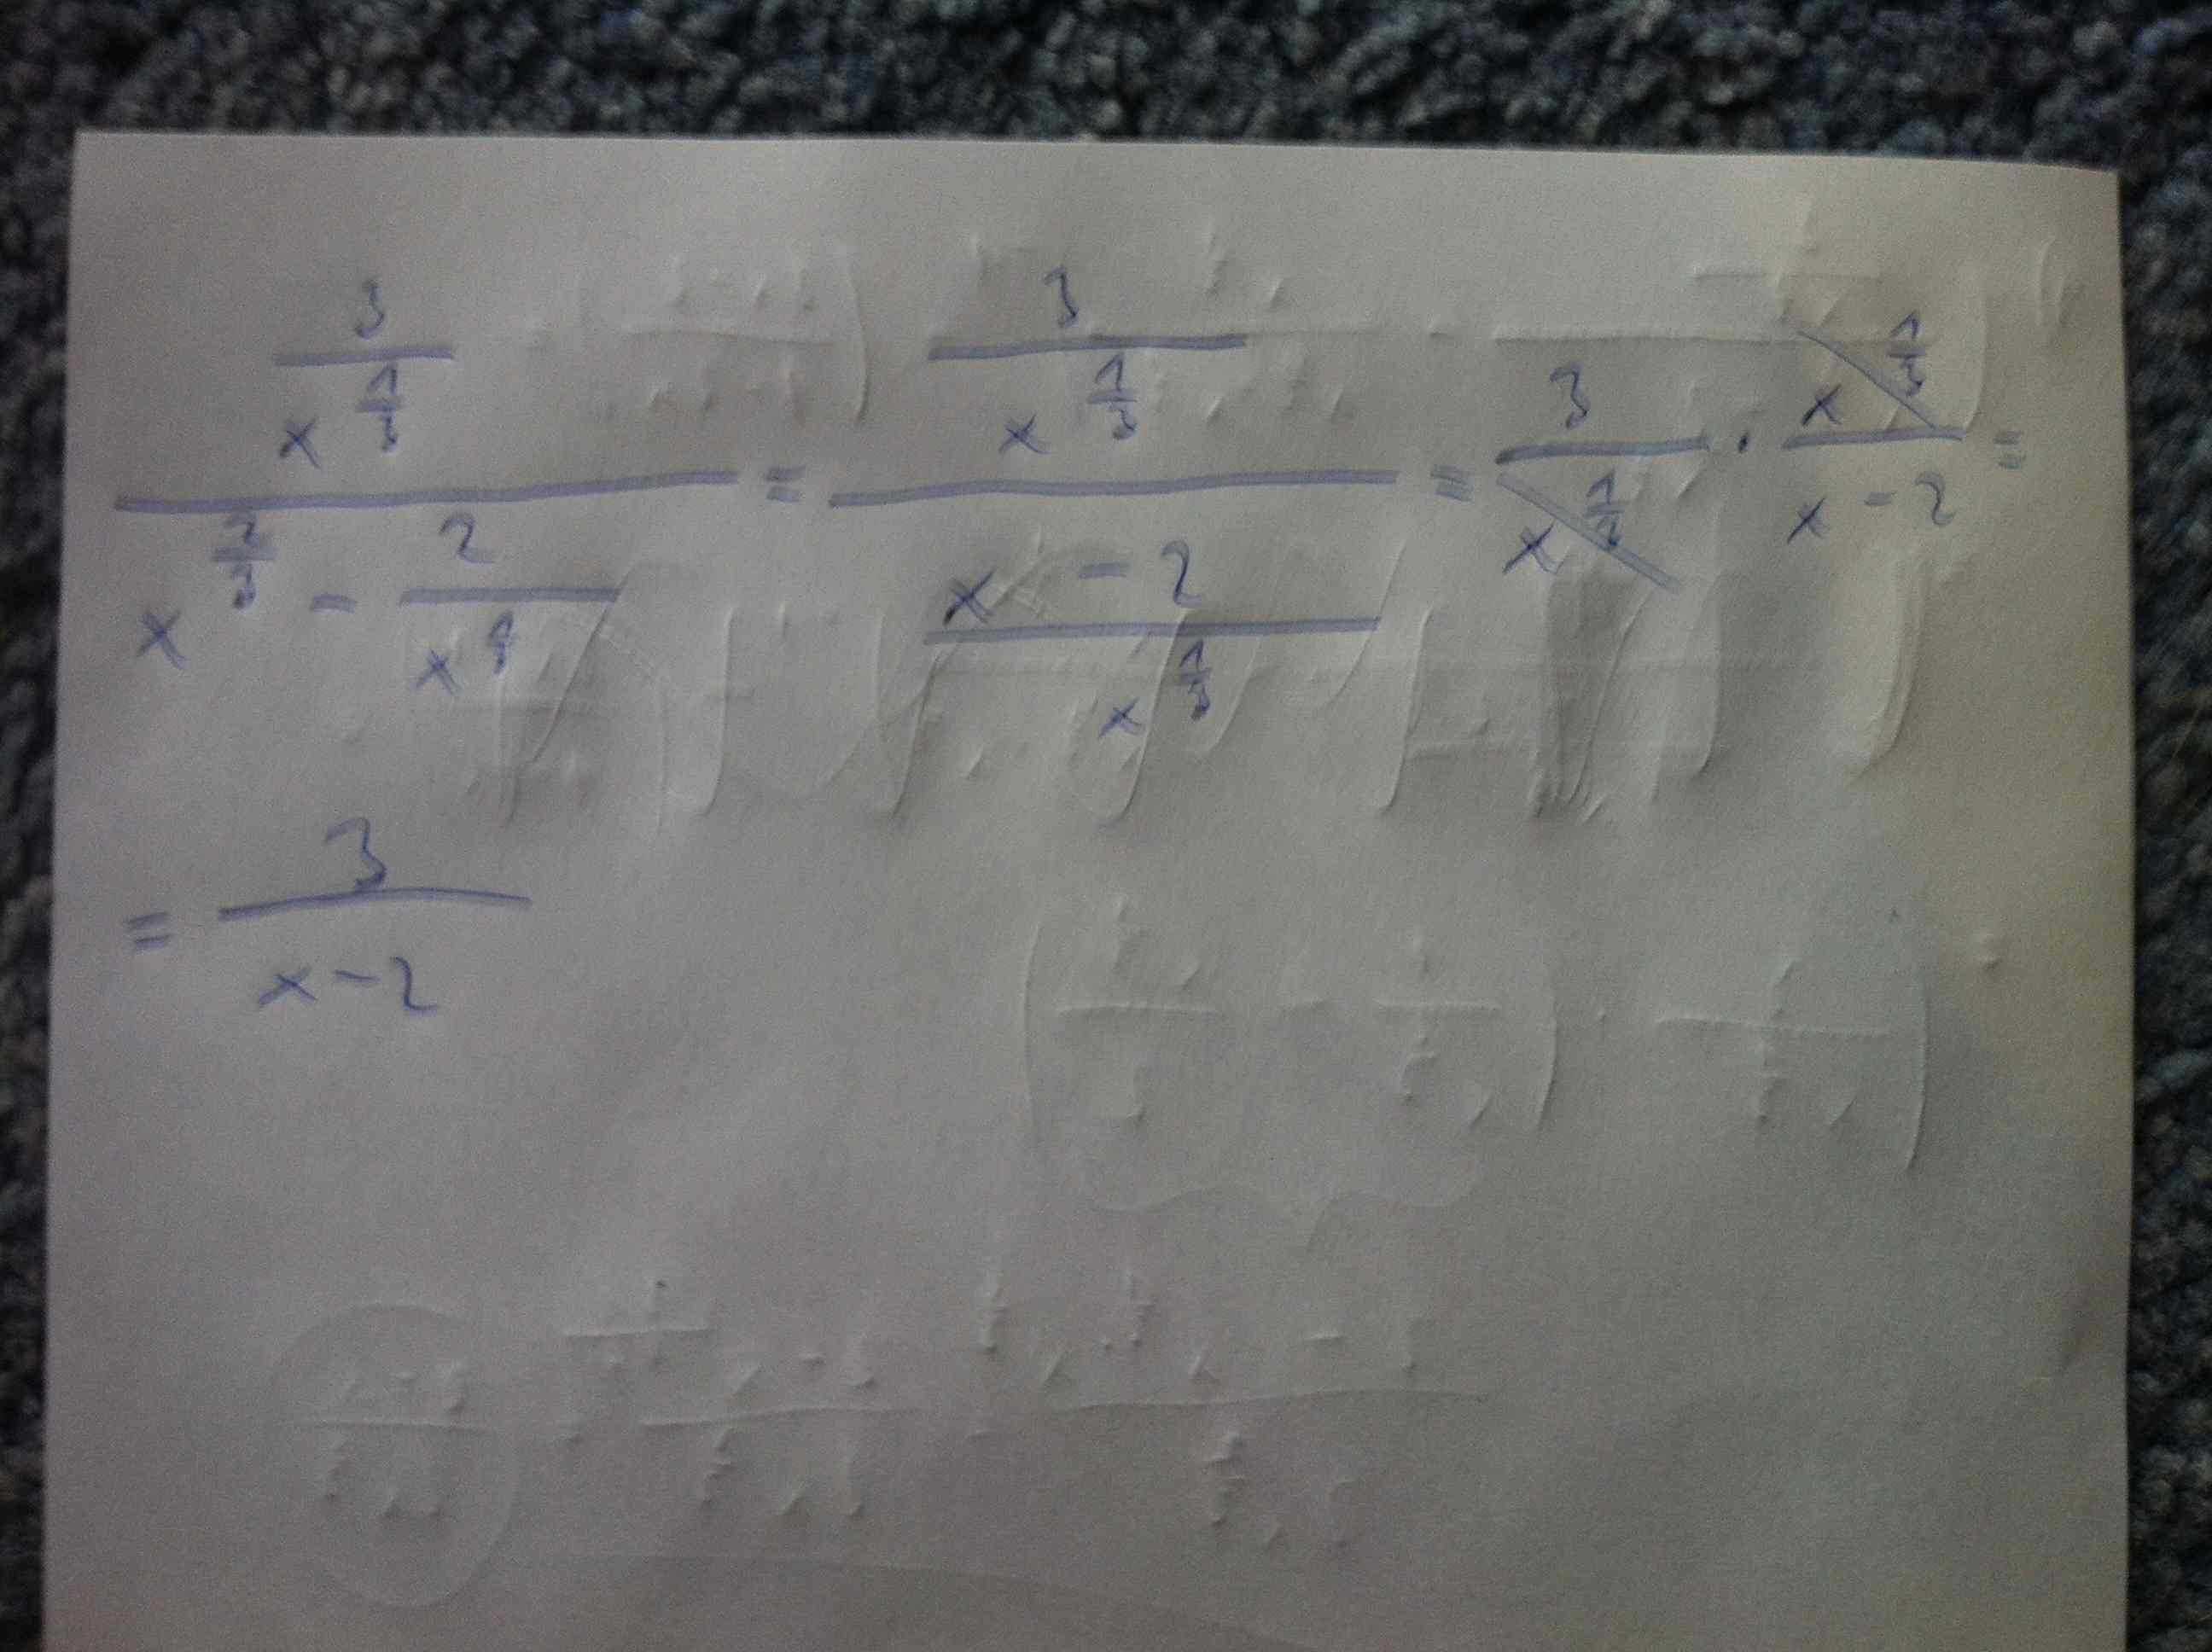 \frac{\frac{3}{x^{\frac{1}{3}}}}{x^{\frac{2}{3}} - \frac{2}{x^{1}}} = \frac{\frac{3}{x^{\frac{1}{3}}}}{\frac{x - 2}{x^{\frac{1}{3}}}} = \frac{3}{x^{\frac{1}{3}}} \cdot \frac{x^{\frac{1}{3}}}{x - 2} =
= \frac{3}{x - 2}